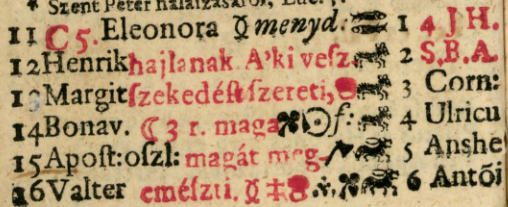 * Szent Péter halálzásáról, Luc.
11 C 5. Eleonora ☿ menyd: 1 4 J H.
12 Henrik hajlanak. A'ki vesz- 2 S. B. A.
13 Margit szekedést szereti, 3 Corn:
14 Bonav. ☾ 3 r. maga ☉ f: 4 Ulricu
15 Apost: oszl: magát meg- 5 Anshe
16 Valter emészti. ☿ 6 Antõi